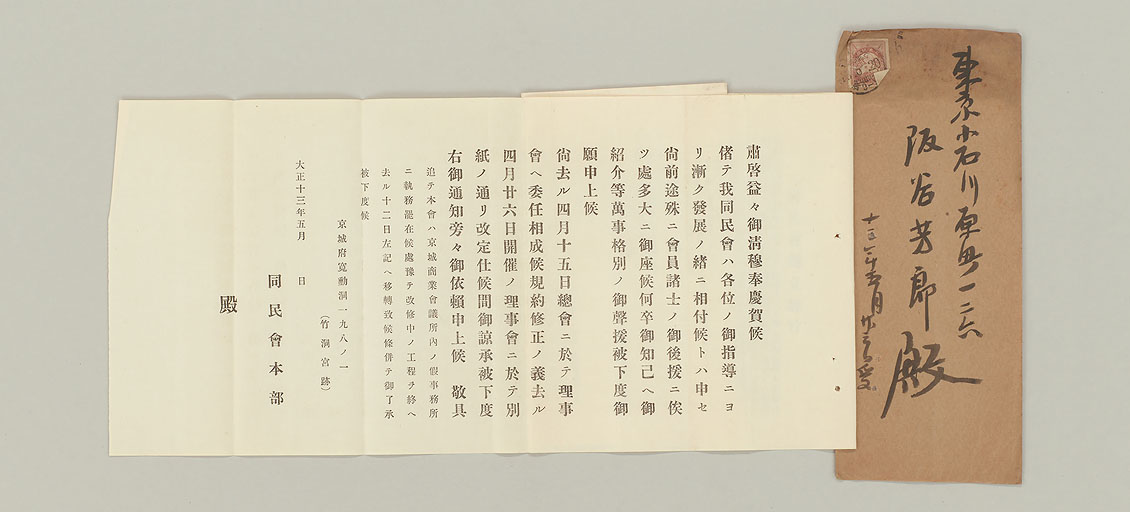 東京小石川原町一二六
阪谷芳郎殿
十三年五月廿三日受
肅啓益々御清穆奉慶賀候
偖テ我同民會ハ各位ノ御指導ニヨ
リ漸ク發展ノ緒ニ相付候トハ申セ
尙前途殊ニ會員諸士ノ御後援ニ俟
ツ處多大ニ御座候何卒御知己ヘ御
紹介等萬事格別ノ御聲援被下度御
願申上候
尙去ル四月十五日總會ニ於テ理事
會ヘ委任相成候規約修正ノ義去ル
四月廿六日開催ノ理事會ニ於テ別
紙ノ通リ改定仕候間御諒承被下度
右御通知旁々御依賴申上候　敬具
追テ本會ハ京城商業會議所內ノ假事務所
ニ執務罷在候處豫テ改修中ノ工程ヲ終ヘ
去ル十二日左記ヘ移轉致候條併テ御了承
被下度候
京城府寬勳洞一九八ノ一
（竹洞宮跡）
大正十三年五月　　日
同民會本部
殿